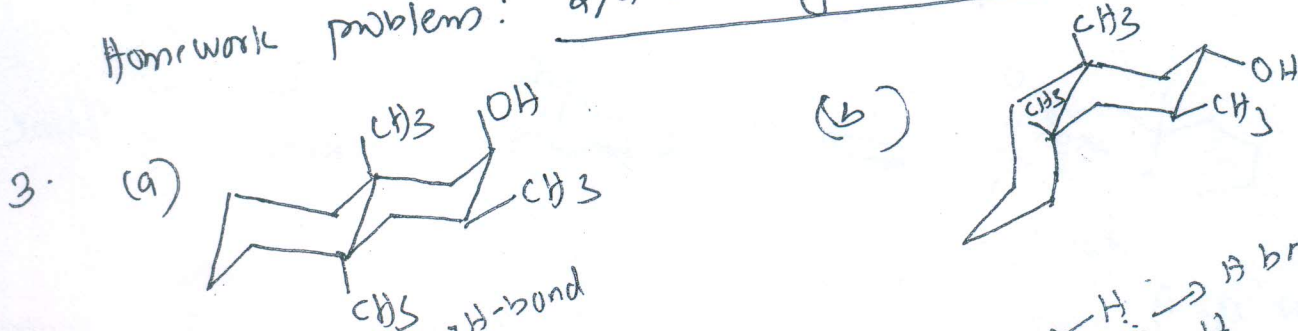 Homework problems:
3. (a)
CH3
OH
CH3
CH3
H-bond
(b)
CH3
OH
CH3
CH3
H
H br